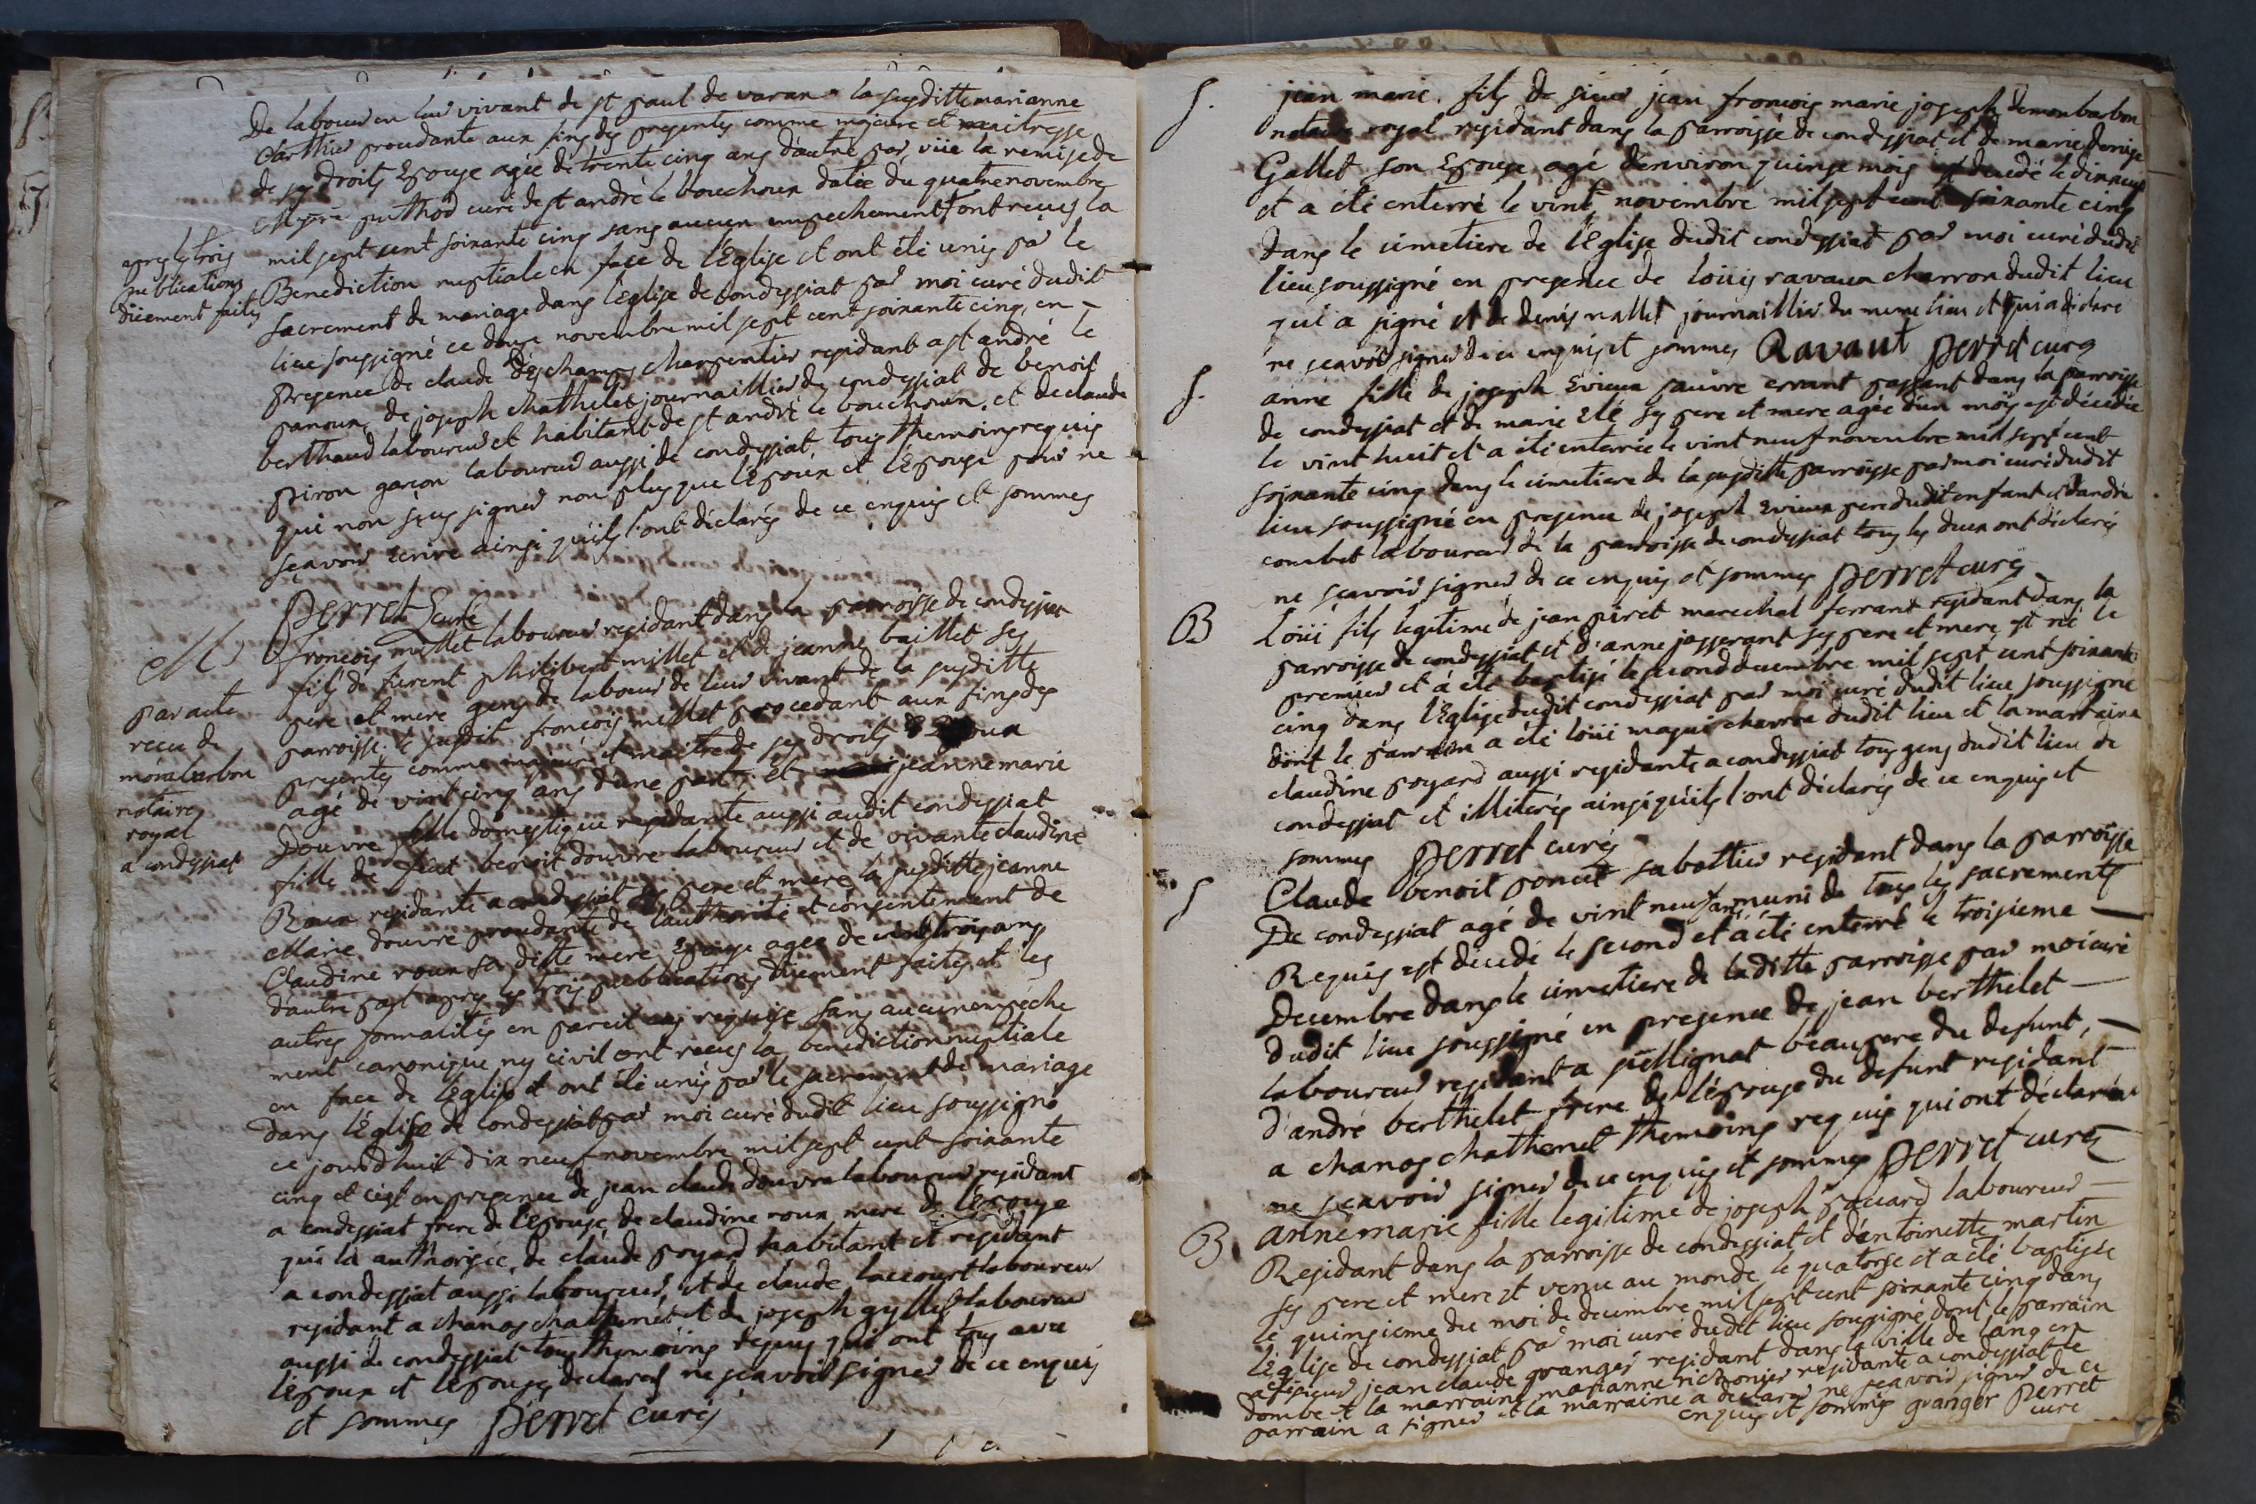 De labour en leur vivant de st paul de varan la susditte marianne
Carthier procedante aux fins des presentes comme majeure et maitresse
de ses droits Epouse agée de trente cinq ans d'autre par viie la remise de
Mre puthod curé de st andré le bouchoux datée du quatre novembre
mil sept cent soixante cinq sans aucun empechement ont recus la
apres les trois
publications
diiement faites
Benediction nuptiale en face de l'Eglise et ont été unis par le
sacrement de mariage dans l'Eglise de condessiat par moi curé dudit
lieu soussigné ce douze novembre mil sept cent soixante cinq, en
presence de claude deschamps charpentier residant a st andré le
panoux, de joseph chathelet journaillier de condessiat de benoit
berthaud laboureur et habitant de st andré le bouchoux, et de claude
piron garçon laboureur aussi de condessiat tous themoins requis
qui non sçus signer non plus que l'Epoux et l'Epouse pour ne
sçavoir Ecrire ainsi qu'ils l'ont déclarés de ce enquis et sommes
perret Curé
M
par acte
recu de
monbarbon
notaire
royal
a condessiat
francois millet laboureur residant dans la parroisse de condessiat
fils de furent philibert millet et de jeanne baillet ses
pere et mere gens de labour de leur vivant de la susditte
parroisse, le susdit francois millet procedant aux fins des
presentes comme majeur et maitre de ses droits Epoux
agé de vint cinq ans d'une part; et jeanne marie
Douvre fille domestique residante aussi audit condessiat
fille de feut benoit douvre laboureur et de vivante claudine
Roux residante a condessiat ses pere et mere la susditte jeanne
Marie douvre procedante de l'authorité et consentement de
Claudine roux sa ditte mere Epouse agée de vint trois ans
d'autre part apres les trois publications diiement faites et les
autres formalités en pareil cas requise sans aucun empeche
ment canonique ny civil ont recus la benediction nuptiale
en face de l'Eglise et ont été unis par le sacrement de mariage
dans l'Eglise de Condessiat par moi curé dudit lieu soussigné
ce jourd'huit dix neuf novembre mil sept cent soixante
cinq et c'est en presence de jean claude douvre laboureur residant
a condessiat frere de l'Epouse de claudine roux mere de l'Epouse
qui la authorisée, de claude poyard habitant et residant
a condessiat aussi laboureur, et de claude laccourt laboureur
residant a chanos chathenet et de joseph gyllet laboureur
aussi de condessiat tous themoins requis qui ont tous avec
l'Epoux et l'Epouse declarés ne sçavoir signer de ce enquis
et sommes perret curé
S. jean marie. fils de sieur jean francois marie joseph demonbarbon
notaire royal residant dans la parroisse de condessiat et de marie denise
Gallet son Epouse agé denviron quinse mois est decedé le dixneuf
et a été enterré le vint novembre mil sept cent soixante cinq
dans le cimetiere de l'Eglise dudit condessiat par moi curé dudit
lieu soussigné en presence de loüis ravaux charron dudit lieu
qui a signé et de denis nallet journaillier du meme lieu et qui a déclaré
ne scavoir signer de ce enquis et sommes Ravaut perret curé
S. anne fille de joseph Evieux pauvre errant passant dans la parroisse
de condessiat et de marie Eté ses pere et mere agée d'un mois est décédée
le vint huit et a été enterrée le vint neuf novembre mil sept cent
soixante cinq dans le cimetiere de la susditte parroisse par moi curé dudit
lieu soussigné en presence de joseph Evieux pere dudit enfant et d'andré
combet laboureur de la parroisse de condessiat tous les deux ont déclarés
ne sçavoir signer de ce enquis et sommes perret curé
B Loüi fils legitime de jean piret marechal ferrant residant dans la
parroisse de condessiat et d'anne josserant ses pere et mere est né le
premier et a été baptisé le second decembre mil sept cent soixante
cinq dans l'Eglise dudit condessiat par moi curé dudit lieu soussigné
dont le parrain a été loüi charron dudit lieu et la marraine
claudine poyard aussi residante a condessiat tous gens dudit lieu de
condessiat et illiterés ainsi qu'ils l'ont déclarés de ce enquis et
sommes perret curé
S Claude benoit poncet sabottier residant dans la parroisse
De condessiat agé de vint neuf ans muni de tous les sacrements
Requis est decedé le second et a été enterré le troisieme
Decembre dans le cimetiere de laditte parroisse par moi curé
dudit lieu soussigné en presence de jean berthelet
laboureur residant a neullignat beaupere du defunt,
d'andré berthelet frere de l'épouse du defunt residant
a chanos chathenet themoins requis qui ont déclarés
ne sçavoir signer de ce enquis et sommes perret curé
B anne marie fille legitime de joseph pauard laboureur
Residant dans la parroisse de condessiat et d'antoinette martin
ses pere et mere est venue au monde le quatorse et a été baptisée
le quinsieme du moi de decembre mil sept cent soixante cinq dans
l'Eglise de condessiat par moi curé dudit lieu soussigné dont le parrain
a été sieur jean claude granger residant dans la ville de bourg en
dombe et la marraine marianne residante a condessiat le
parrain a signer et la marraine a declarer ne sçavoir signer de ce
enquis et sommes granger perret
curé